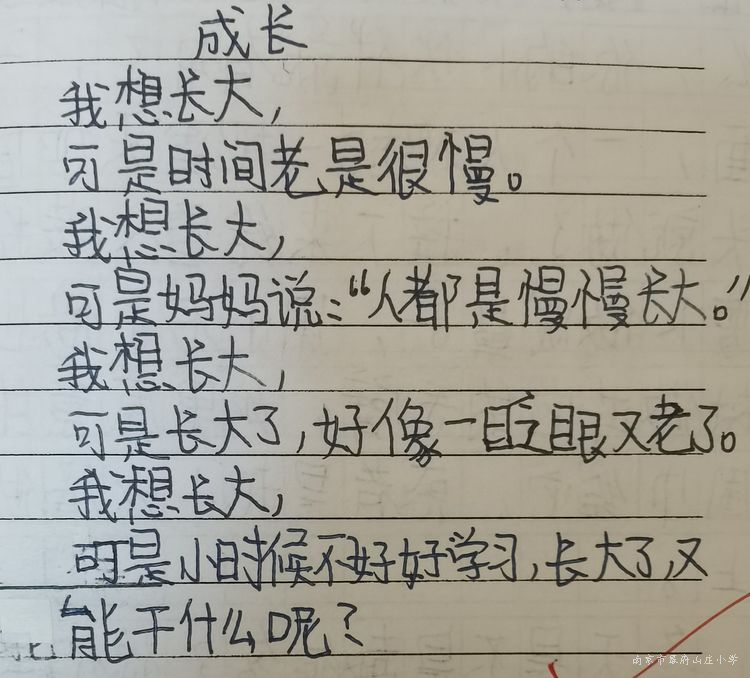 成长
我想长大，
可是时间老是很慢。
我想长大，
可是妈妈说：“人都是慢慢长大。”
我想长大，
可是长大了，好像一眨眼又老了。
我想长大，
可是小时候不好好学习，长大了，又
能干什么呢？
南京市幕府山庄小学